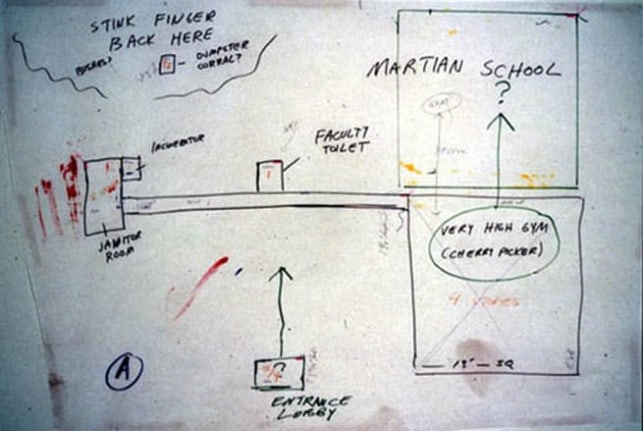 STINK FINGER
BACK HERE
DUMPSTER
CORRAL?
MARTIAN SCHOOL
?
INCINERATOR
FACULTY
TOILET
JANITOR
ROOM
VERY HIGH GYM
(CHERRY PICKER)
4 STORIES
13' — SQ
A
ENTRANCE
LOBBY